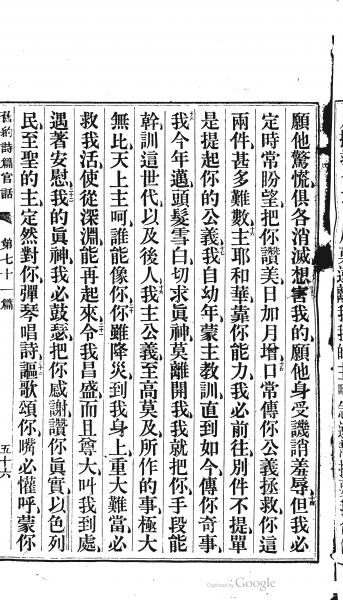 願他驚慌俱各消滅想害我的願他身受譏誚羞辱但我必
定時常盼望把你讚美日加月增口常傳你公義拯救你這
兩件甚多難數主耶和華靠你能力我必前往別件不提單
是提起你的公義我自幼年蒙主教訓直到如今傳你奇事
我今年邁頭髮雪白切求眞神莫離開我我就把你手段能
幹訓這世代以及後人我主公義至高莫及所作的事極大
無比天上主呵誰能像你你雖降災到我身上重大難當必
救我活使從深淵能再起來令我昌盛而且尊大叫我到處
遇著安慰我的眞神我必鼓瑟把你感謝讚你眞實以色列
民至聖的主定然對你彈琴唱詩謳歌頌你嘴必懽呼蒙你
舊約詩篇官話 第七十一篇 五十六
Digitized by Google